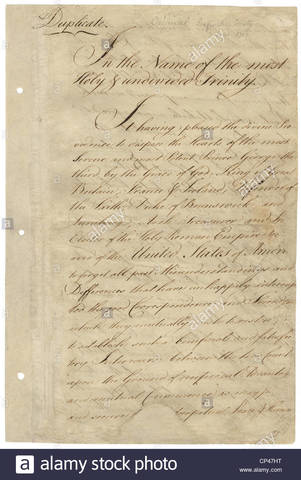 Duplicate.
In the Name of the most
Holy & undivided Trinity.
It having pleased the divine Pro
vidence to dispose the Hearts of the most
Serene and most Potent Prince George the
third by the Grace of God, King of Great
Britain, France & Ireland, Defender of
the Faith, Duke of Brunswick and
Luneburg, Arch Treasurer and
Elector of the Holy Roman Empire &c
and of the United States of America
to forget all past Misunderstandings and
Differences that have unhappily interrup
ted the good Correspondence and Friendship
which they mutually wish to restore;
to establish such a beneficial and satisfac
tory Intercourse between the two Countries
upon the Ground of reciprocal
and mutual Convenience as may
and secure Perpetual Peace &
alamy stock photo
CP47HT
www.alamy.com